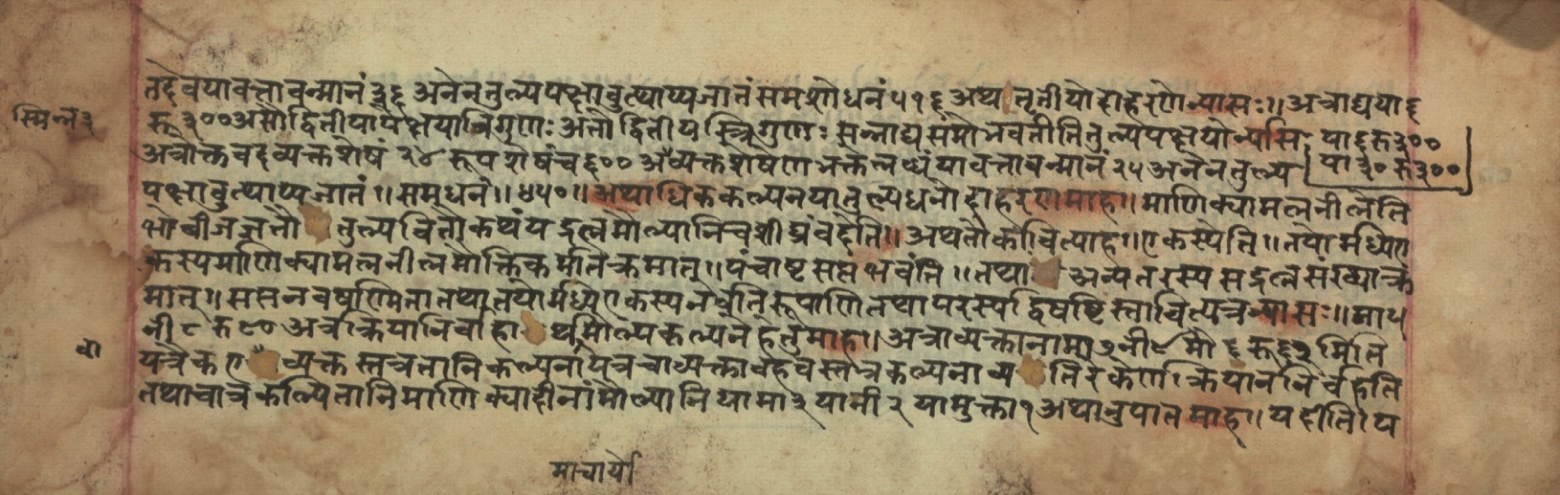 तदेवयावत्तावन्मानं ३६ अनेनतुल्यपक्षावुत्थाप्यजातंसमशोधनं ५१६ अथतृतीयोदाहरणेन्यासः॥ अत्राद्यया ६
स्मिन्नं ३
रू ३०० असौद्वितीयार्धपक्षयात्रिगुणः अतोद्वितीयस्त्रिगुणः सन्नाद्यसमोभवतीतितुल्यपक्षयोर्न्यासः या ६ रू ३००
या ३० रू ३००
अत्रोक्तवदव्यक्तशेषं २४ रूपशेषंच ६०० अव्यक्तशेषेणभक्तेलब्धंयावत्तावन्मानं २५ अनेनतुल्य
पक्षावुत्थाप्यजातं॥ समधनं॥ ४५०॥ अथाधिककल्पनयातुल्यधनोदाहरणमाह॥ माणिक्यामलनीलेति
भोबीजज्ञतौ तुल्यवित्तौकथंयद्रत्नमौल्यानिचशीघ्रंवदेति॥ अथतौकौचित्प्राह॥ एकस्येति॥ तयोर्मध्येए
कस्यमाणिक्यामलनीलमौक्तिकमितिक्रमात्॥ पंचाष्टसप्तभवंति॥ तथा अन्यतरस्यसद्रत्नसंख्याक्र
मात्॥ सप्तनवषण्मितातथातयोर्मध्येएकस्यनवतिरूपाणितथापरस्यद्विषष्टिस्तावित्यत्रन्यासः॥ मा ५
नी ८ रू ९० अत्रक्रियानिर्वाहा र्थमौल्यकल्पनहेतुमाह॥ अत्राव्यक्तानामा ७ नी ९ मौ ६ रू ६२ मिति
वो
यत्रैकए व्यक्तस्तत्रतानिकल्पनीयत्रचाव्यक्ताबहवस्तत्रकल्पनाव्य तिरेकेणक्रियाननिर्वहति
तथाचात्रकल्पितानिमाणिक्यादीनांमौल्यानियामा ३ यानी २ यामुक्ता १ अथानुपातमाह॥ यदीति। य
माचार्यो